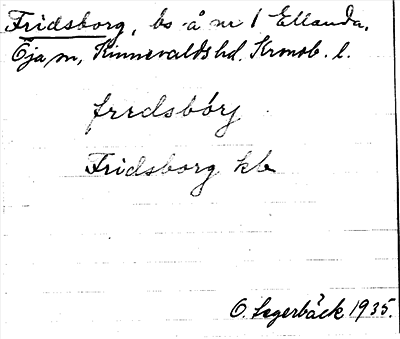 Fridsborg, bs å nr 1 Ellanda,
Öja sn, Kinnevalds hd. Kronob. l.
frıdsbórj
Fridsborg kb
O. Segerbäck 1935.